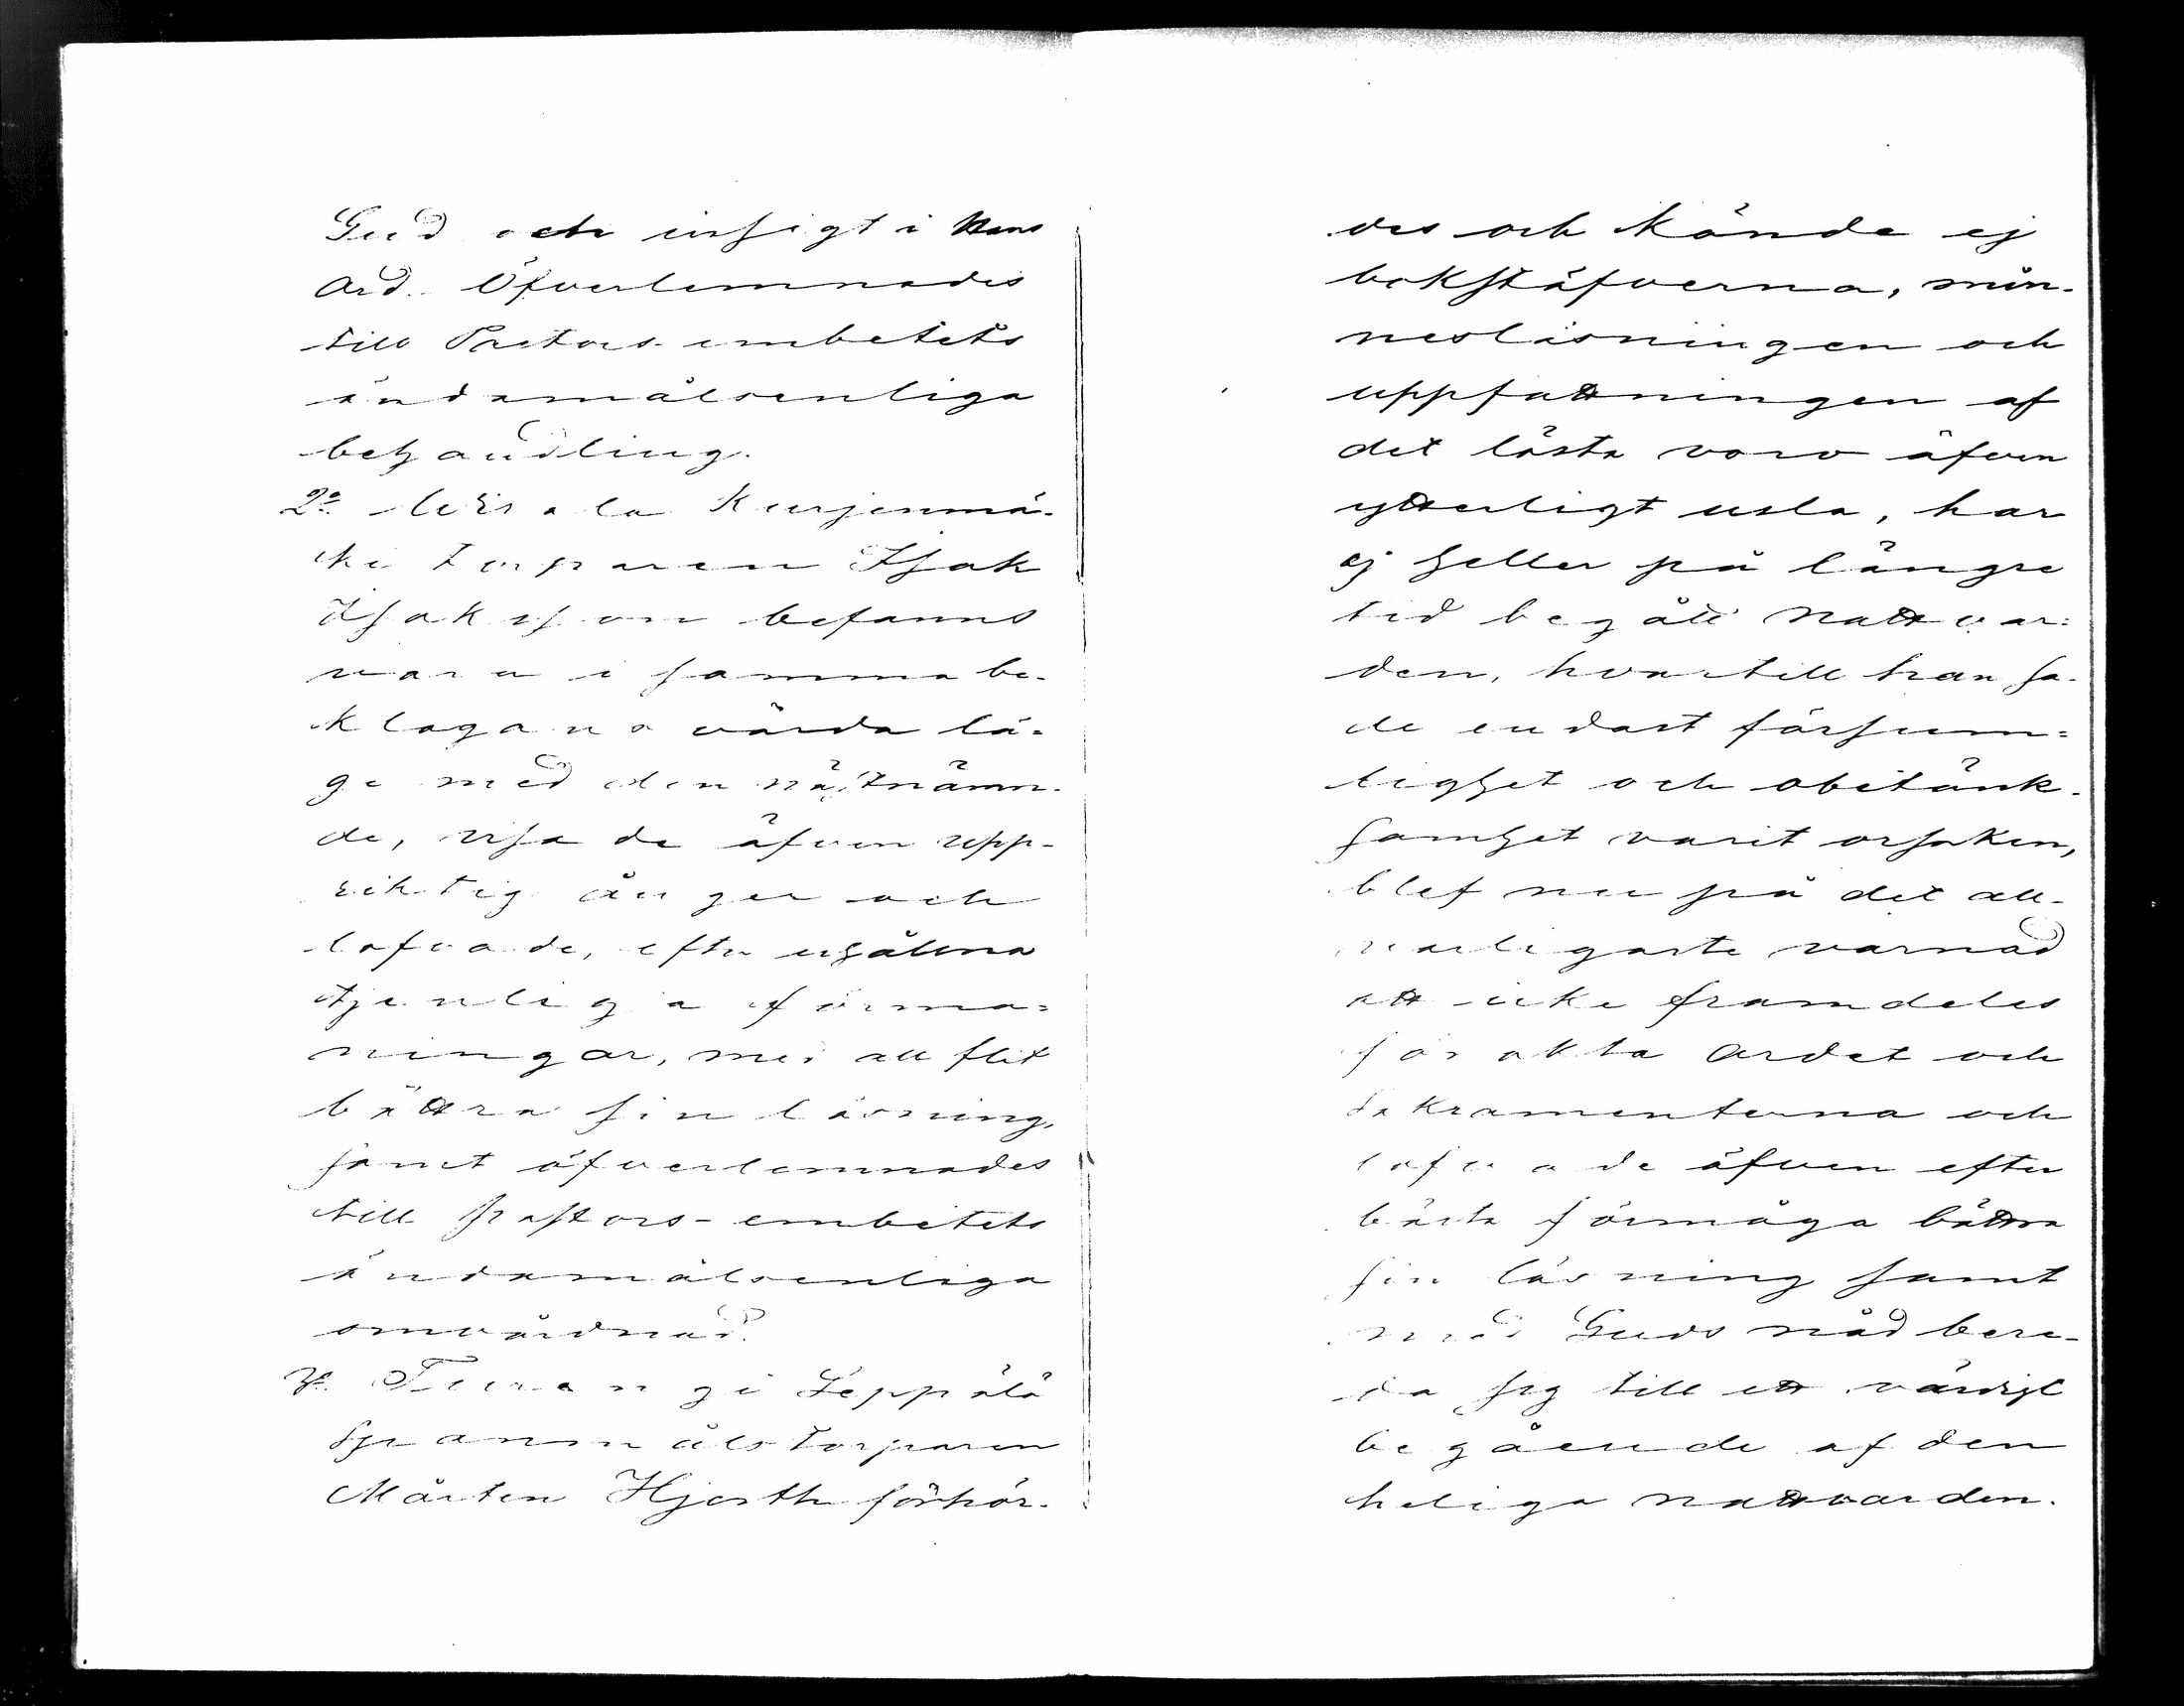 Gud och insigt i Hans
Ord. Öfverlemnades
till Pastors-embetets
ändamålsenliga
behandling.
2o Wirala Kurjenmä-
ki torparen Isak
Isaksson befanns
vara i samma be-
klagansvärda lä-
ge med den nästnämn-
de, visade äfven upp-
riktig ånger och
lofvade, efter erhållna
tjenliga förma-
ningar, med all flit
bättra sin läsning,
samt öfverlemnades
till pastors-embetets
ändamålsenliga
omvårdnad.
3o Teerangi Seppälä
Spannmålstorparen
Mårten Hjorth förhör-
des och kände ej
bokstäfverna, min-
nesläsningen och
uppfattningen af
det lästa voro äfven
ytterligt usla, har
ej heller på längre
tid begått natvar-
den, hvartill han sa-
de endast försum-
lighet och obetänk-
samhet varit orsaken,
blef nu på det all-
varligaste varnad
att icke framdeles
förakta Ordet och
Sakramenterna och
lofvade äfven efter
bästa förmåga bättra
sin läsning samt
med Guds nåd bere-
da sig till ett värdigt
begående af den
heliga nattvarden.